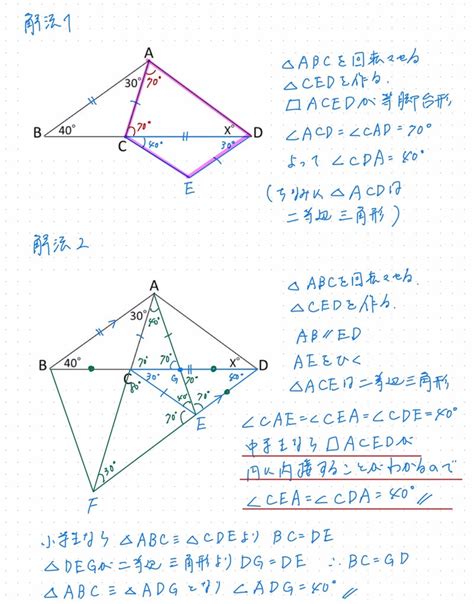 解法1
A
30°
70°
B
40°
70°
C
40°
X°
D
30°
E
△ABCを回転させる
△CEDを作る.
□ACEDが等脚台形
∠ACD=∠CAD=70°
よって ∠CDA=40°
(ちなみに △ACDは
二等辺三角形)
解法2
A
30°
40°
B
40°
C
70°
G
70°
X°
D
80°
30°
70°
40°
40°
70°
E
70°
30°
F
△ABCを回転させる
△CEDを作る.
AB//ED
AEをひく
△ACEは二等辺三角形
∠CAE=∠CEA=∠CDE=40°
中学生なら □ACEDが
円に内接することがわかるので
∠CEA=∠CDA=40°//
小学生なら △ABC≡△CDEより BC=DE
△DEGが二等辺三角形より DG=DE ∴BC=GD
△ABC≡△ADGとなり ∠ADG=40°//